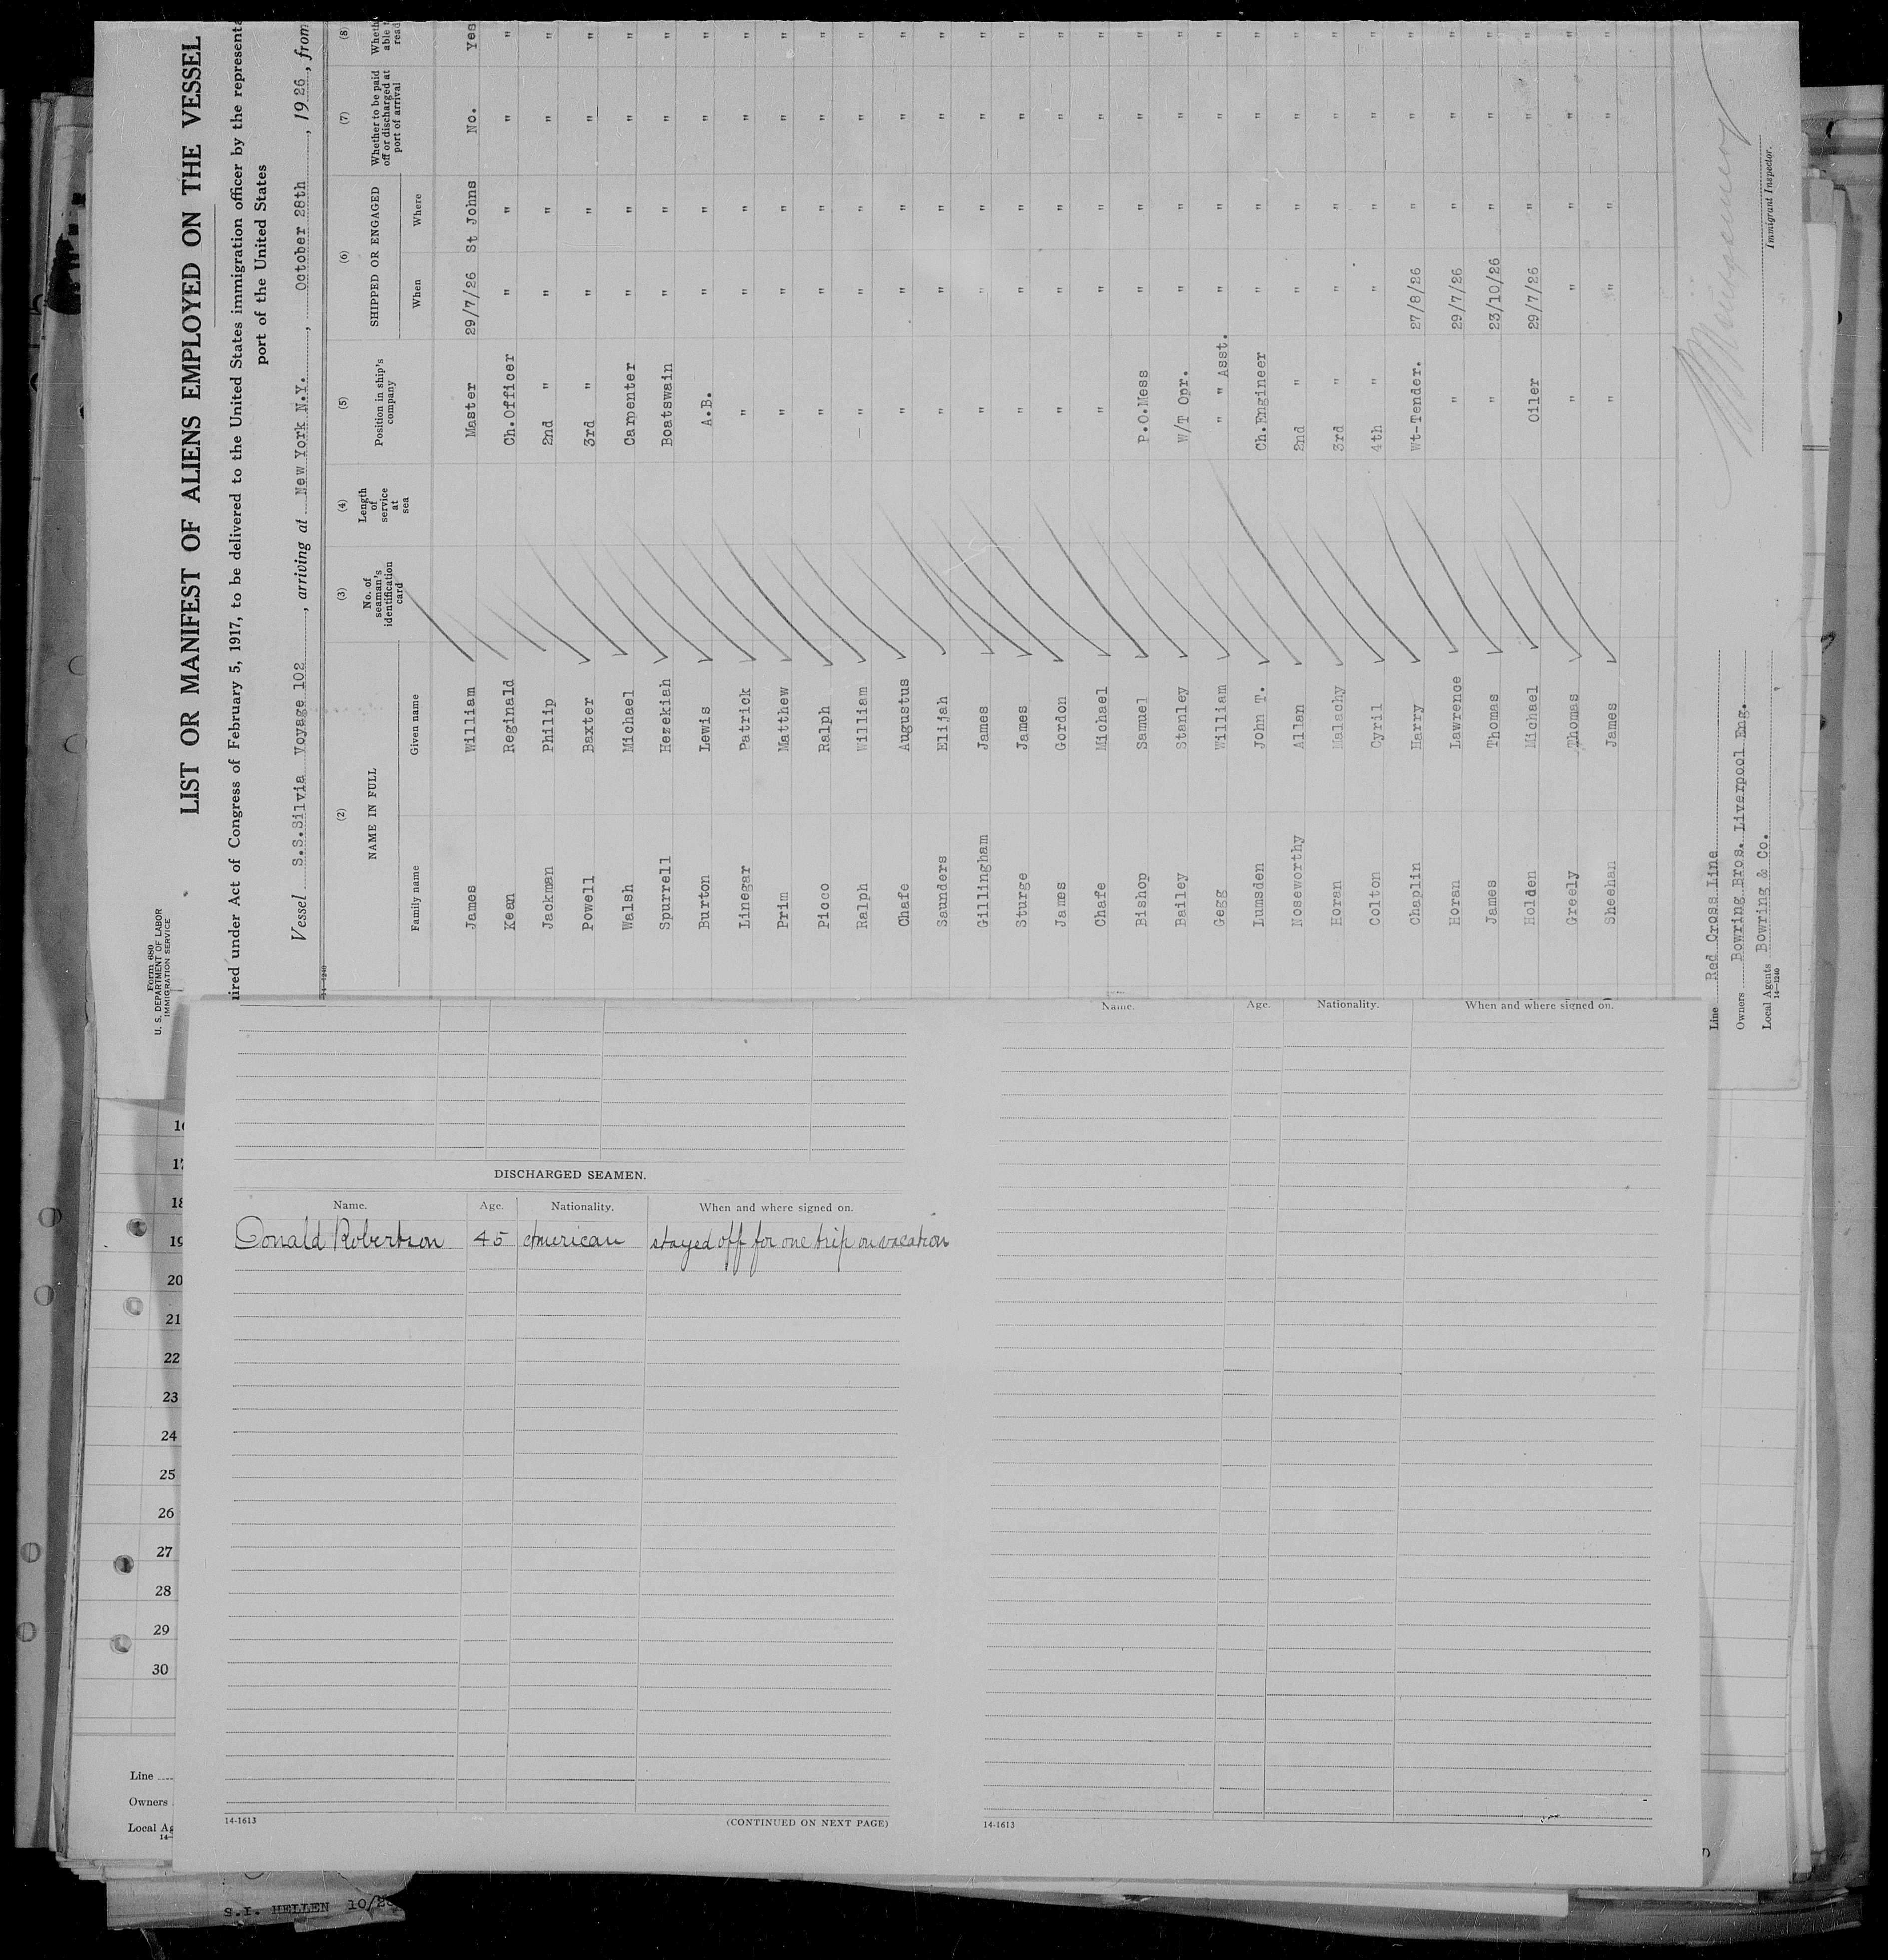 Form 680
U. S. DEPARTMENT OF LABOR
IMMIGRATION SERVICE
LIST OR MANIFEST OF ALIENS EMPLOYED ON THE VESSEL
uired under Act of Congress of February 5, 1917, to be delivered to the United States immigration officer by the representa
port of the United States
Vessel S.S.Silvia Voyage 102, arriving at New York N.Y., October 28th, 1926, from
14-1240
(2) (3) (4) (5) (6) (7) (8)
NAME IN FULL No. of seaman's identification card Length of service at sea Position in ship's company SHIPPED OR ENGAGED Whether to be paid off or discharged at port of arrival
Family name Given name When Where
James William Master 29/7/26 St Johns No. Yes
Kean Reginald Ch.Officer " " " "
Jackman Philip 2nd " " " " "
Powell Baxter 3rd " " " " "
Walsh Michael Carpenter " " " "
Spurrell Hezekiah Boatswain " " " "
Burton Lewis A.B. " " " "
Linegar Patrick " " " " "
Prim Matthew " " " " "
Picco Ralph " " " " "
Ralph William " " " " "
Chafe Augustus " " " " "
Saunders Elijah " " " " "
Gillingham James " " " " "
Sturge James " " " " "
James Gordon " " " " "
Chafe Michael " " " " "
Bishop Samuel P.O.Mess " " " "
Bailey Stanley W/T Opr. " " " "
Gegg William " " Asst. " " " "
Lumsden John T. Ch.Engineer " " " "
Noseworthy Allan 2nd " " " " "
Horan Malachy 3rd " " " " "
Colton Cyril 4th " " " " "
Chaplin Harry Wt-Tender. 27/8/26 " " "
Horan Lawrence " 29/7/26 " " "
James Thomas " 23/10/26 " " "
Holden Michael Oiler 29/7/26 " " "
Greely Thomas " " " " "
Sheehan James " " " " "
Line Red Cross Line
Owners Bowring Bros. Liverpool Eng.
Local Agents Bowring & Co.
14-1240
Immigrant Inspector.
Name. Age. Nationality. When and where signed on.
DISCHARGED SEAMEN.
Name. Age. Nationality. When and where signed on.
Donald Robertson 45 American stayed off for one trip on vacation
14-1613
(CONTINUED ON NEXT PAGE)
14-1613
18
19
20
21
22
23
24
25
26
27
28
29
30
Line
Owners
Local Ag
14-
S.I. HELLEN 10/28